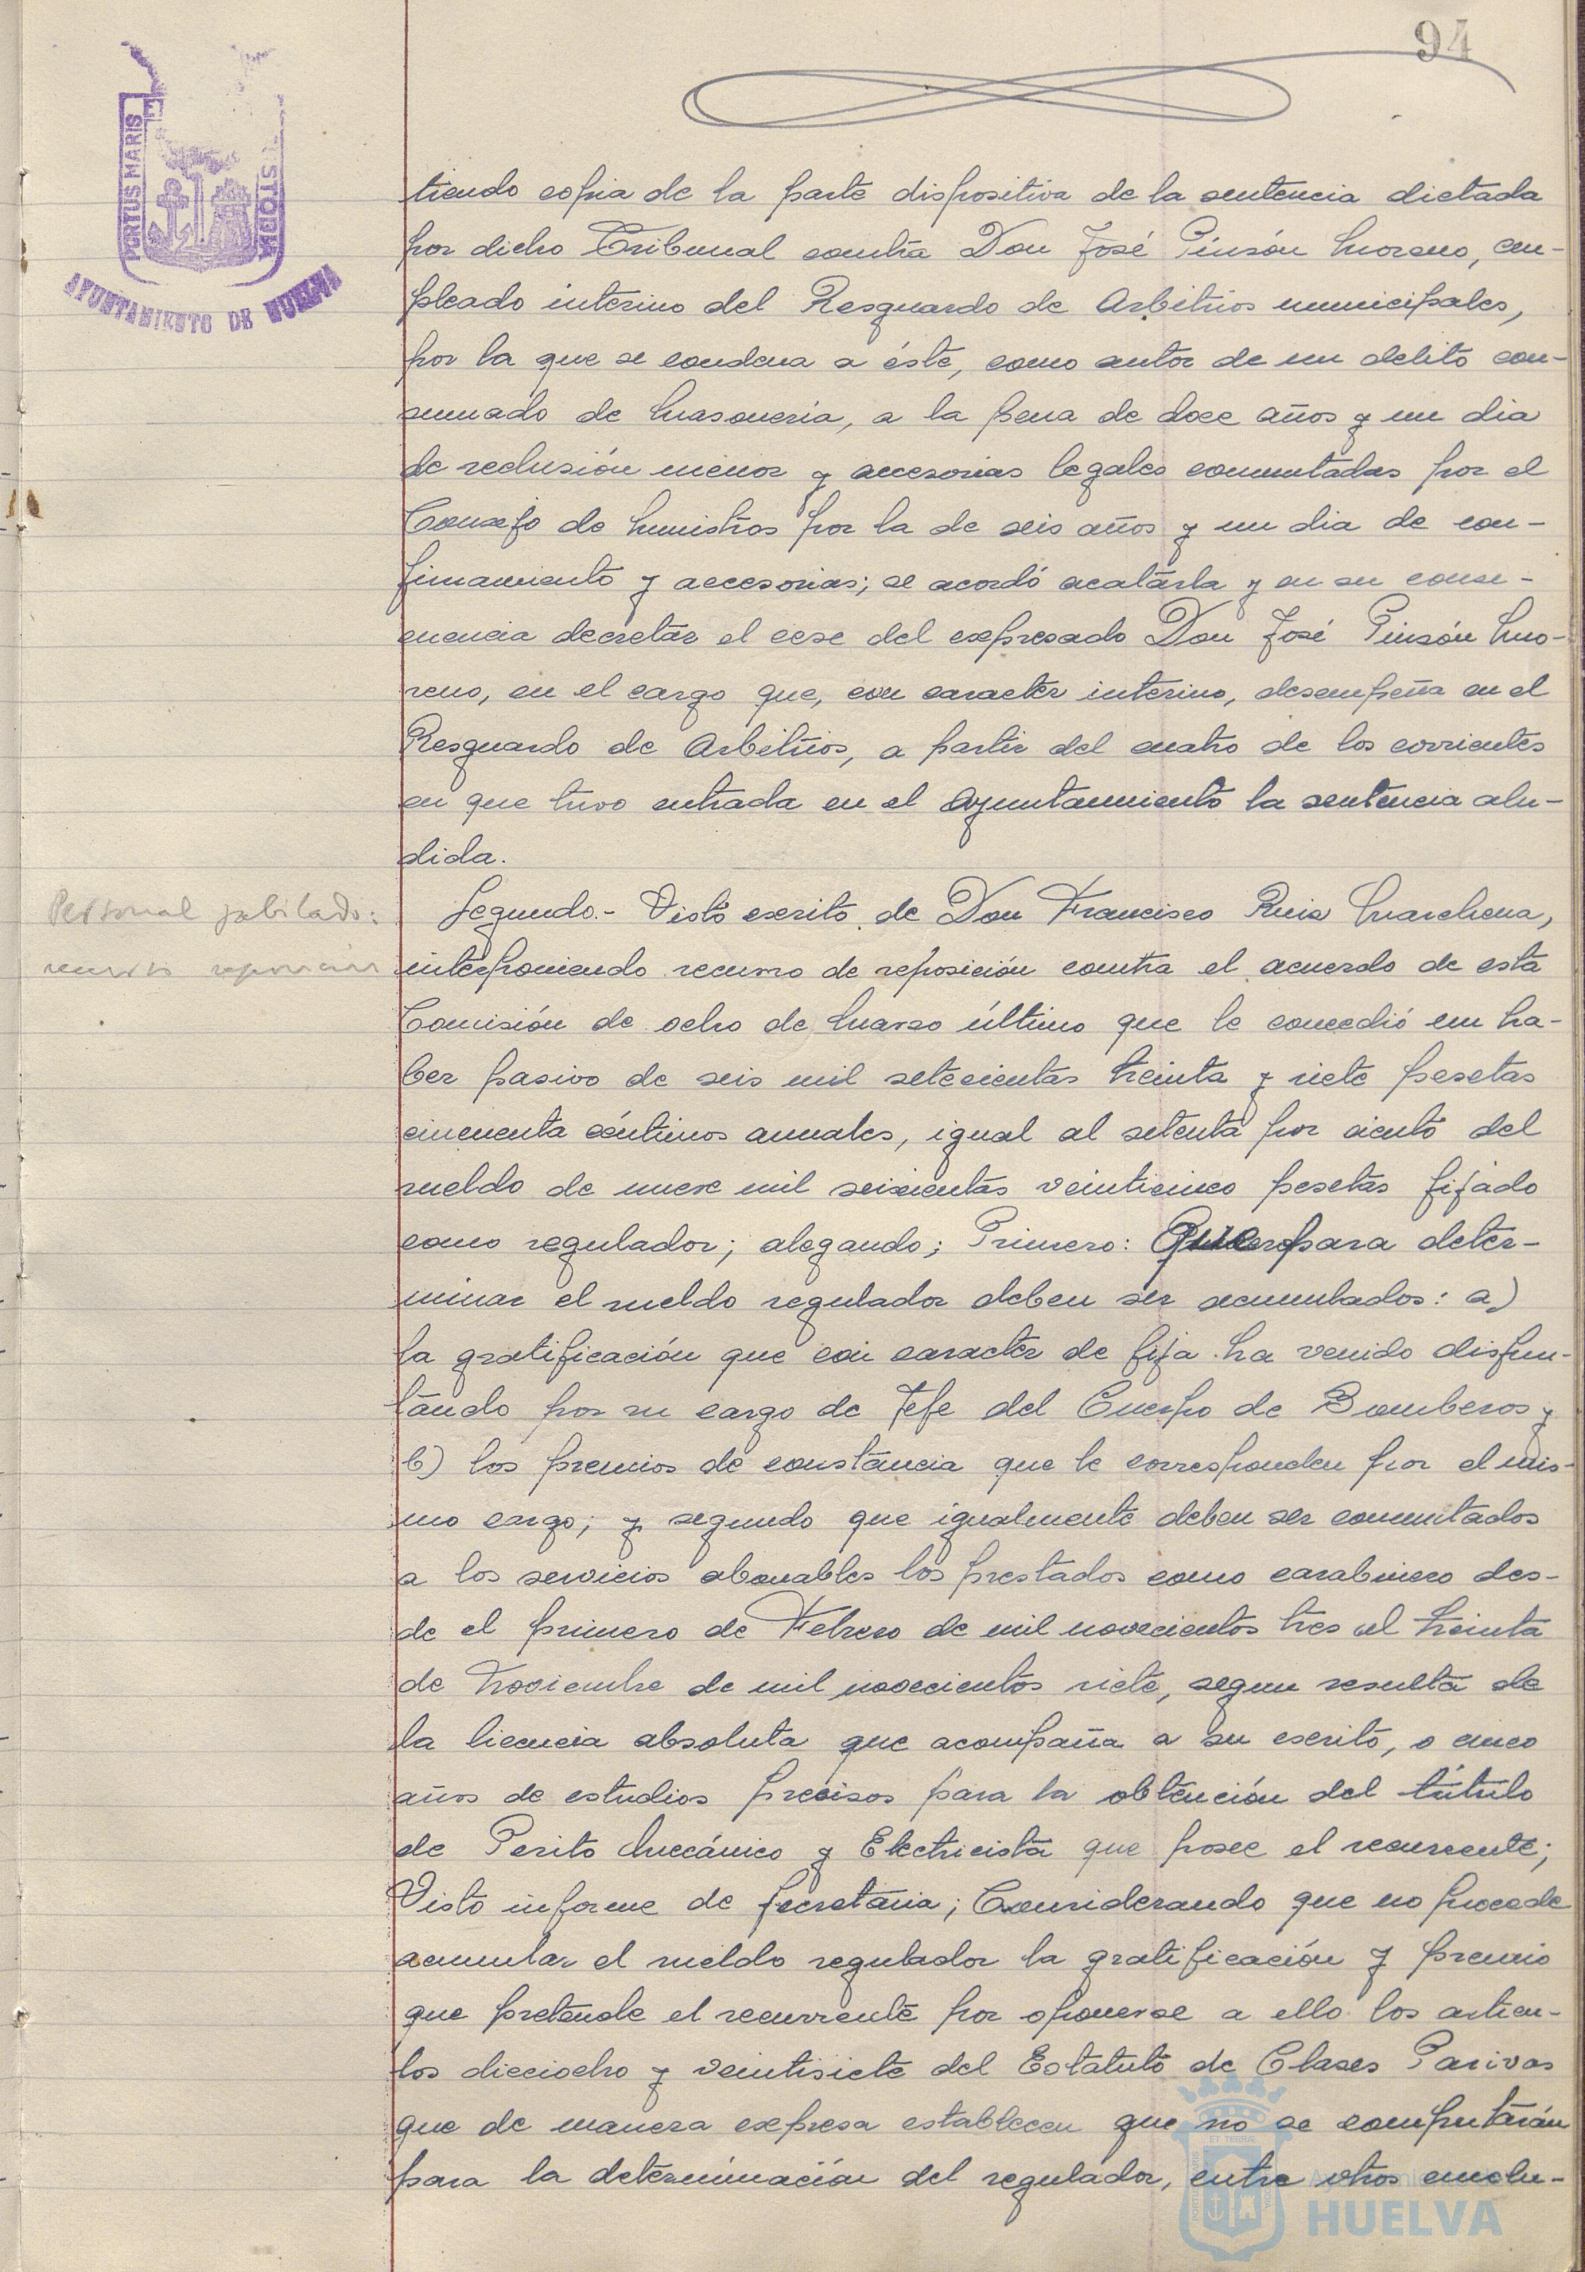 94
PORTUS MARIS
ET
CUSTODIA
AYUNTAMIENTO DE HUELVA
tiendo copia de la parte dispositiva de la sentencia dictada
por dicho Tribunal contra Don José Pinzón Moreno, em-
pleado interino del Resguardo de Arbitrios municipales,
por la que se condena a éste, como autor de un delito con-
sumado de Masonería, a la pena de doce años y un dia
de reclusión menor y accesorias legales conmutadas por el
Consejo de Ministros por la de seis años y un dia de con-
finamiento y accesorias; se acordó acatarla y en su conse-
cuencia decretar el cese del expresado Don José Pinzón Mo-
reno, en el cargo que, con caracter interino, desempeña en el
Resguardo de Arbitrios, a partir del cuatro de los corrientes
en que tuvo entrada en el Ayuntamiento la sentencia alu-
dida.
Personal jubilado:
recurso reposición
Segundo.- Visto escrito de Don Francisco Ruiz Marchena,
interponiendo recurso de reposición contra el acuerdo de esta
Comisión de ocho de Marzo último que le concedió un ha-
ber pasivo de seis mil setecientas treinta y siete pesetas
cincuenta céntimos anuales, igual al setenta por ciento del
sueldo de nueve mil seiscientas veinticinco pesetas fijado
como regulador; alegando; Primero: Que para deter-
minar el sueldo regulador deben ser acumulados: a)
la gratificación que con caracter de fija ha venido disfru-
tando por su cargo de Jefe del Cuerpo de Bomberos y
b) los premios de constancia que le corresponden por el mis-
mo cargo; y segundo que igualmente deben ser conmutados
a los servicios abonables los prestados como carabinero des-
de el primero de Febrero de mil novecientos tres al treinta
de Noviembre de mil novecientos siete, segun resulta de
la licencia absoluta que acompaña a su escrito, o cinco
años de estudios precisos para la obtención del título
de Perito Mecánico y Electricista que posee el recurrente;
Visto informe de Secretaria; Considerando que no procede
acumular el sueldo regulador la gratificación y premio
que pretende el recurrente por oponerse a ello los articu-
los dieciocho y veintisiete del Estatuto de Clases Pasivas
que de manera expresa establecen que no se computarán
para la determinación del regulador, entre otros emolu-
HUELVA